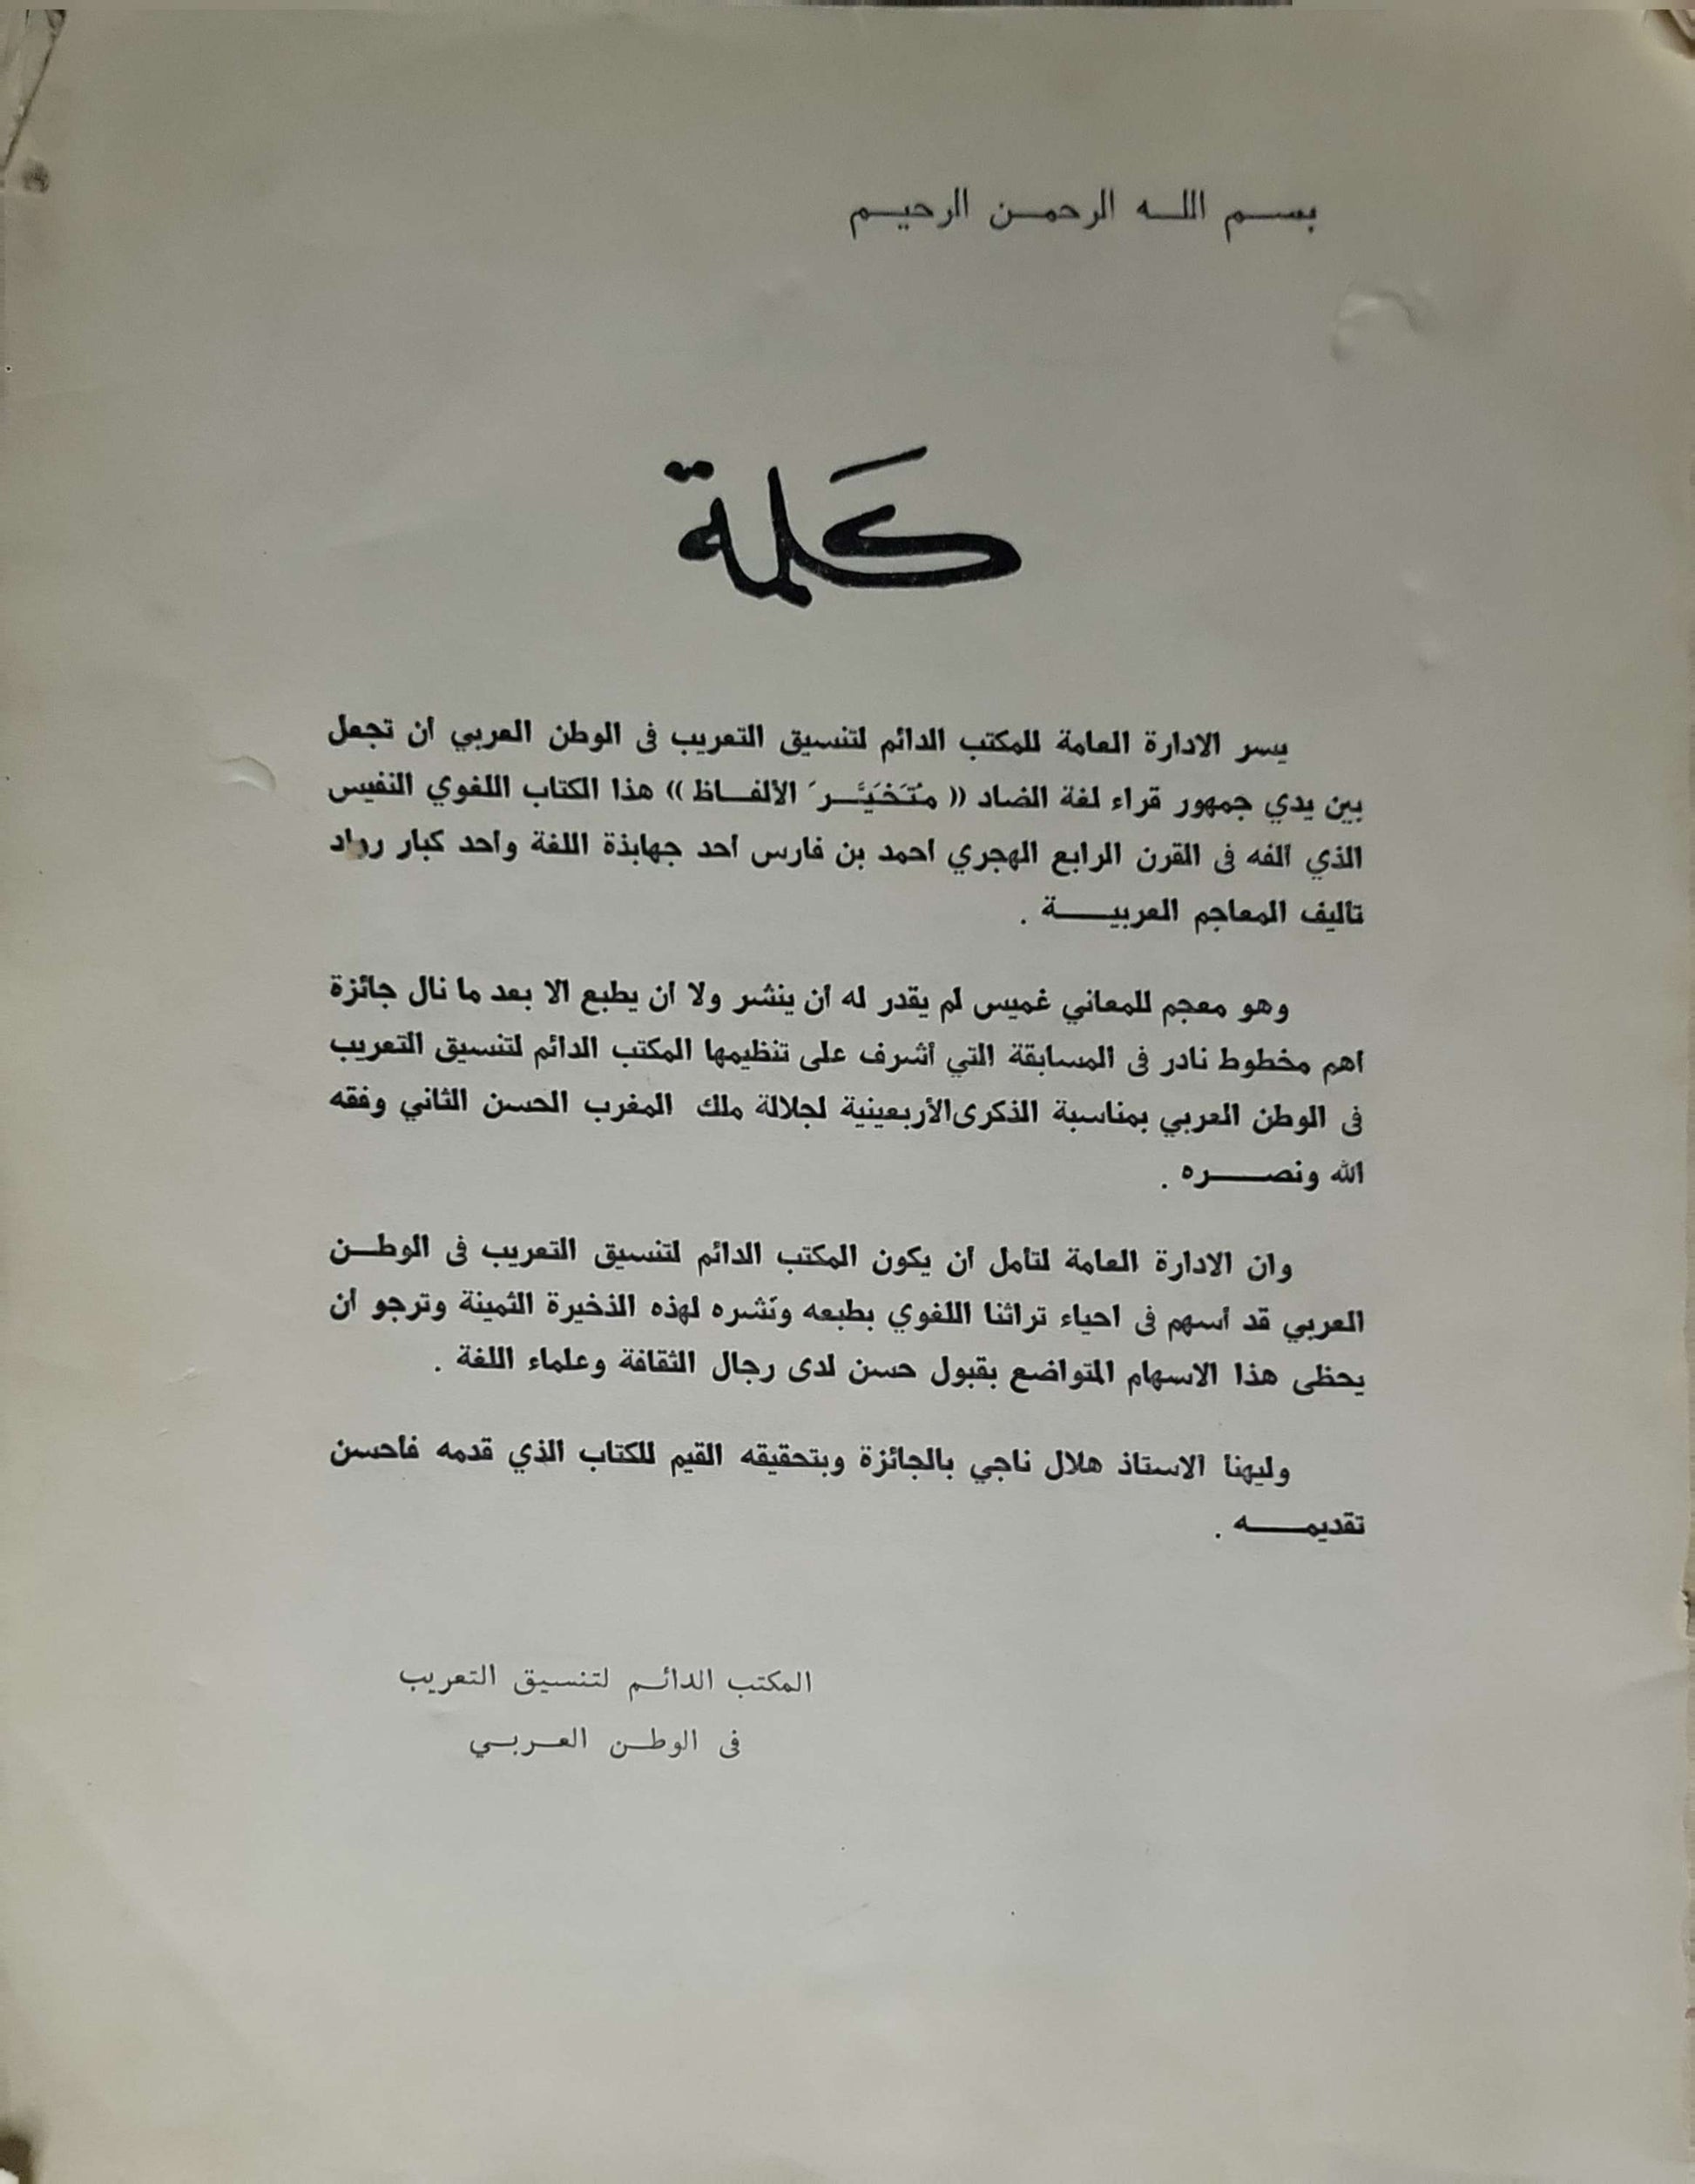 بسم الله الرحمن الرحيم
كلمة
يسر الادارة العامة للمكتب الدائم لتنسيق التعريب فى الوطن العربي أن تجعل
بين يدي جمهور قراء لغة الضاد (( مُتَخَيَّر الألفاظ )) هذا الكتاب اللغوي النفيس
الذي ألفه فى القرن الرابع الهجري احمد بن فارس احد جهابذة اللغة واحد كبار رواد
تأليف المعاجم العربية .
وهو معجم للمعاني غميس لم يقدر له أن ينشر ولا أن يطبع الا بعد ما نال جائزة
اهم مخطوط نادر فى المسابقة التي أشرف على تنظيمها المكتب الدائم لتنسيق التعريب
فى الوطن العربي بمناسبة الذكرى الأربعينية لجلالة ملك المغرب الحسن الثاني وفقه
الله ونصره .
وان الادارة العامة لتأمل أن يكون المكتب الدائم لتنسيق التعريب فى الوطن
العربي قد أسهم فى احياء تراثنا اللغوي بطبعه ونشره لهذه الذخيرة الثمينة وترجو أن
يحظى هذا الاسهام المتواضع بقبول حسن لدى رجال الثقافة وعلماء اللغة .
وليهنأ الاستاذ هلال ناجي بالجائزة وبتحقيقه القيم للكتاب الذي قدمه فأحسن
تقديمه .
المكتب الدائم لتنسيق التعريب
فى الوطن العربي